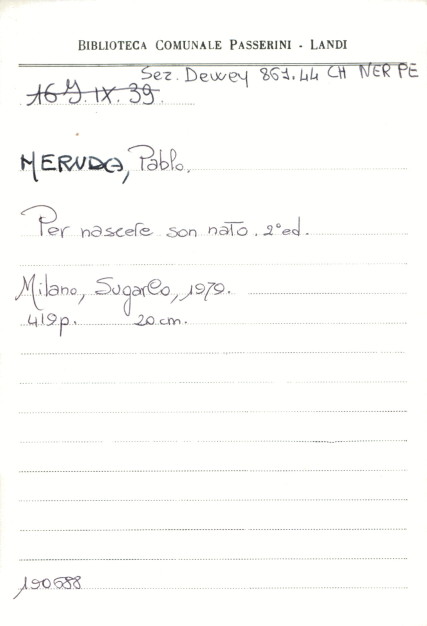 BIBLIOTECA COMUNALE PASSERINI - LANDI
Sez. Dewey 861.44 CH NER PE
16 Y. IX. 39.
NERUDA, Pablo.
Per nascere son nato. 2° ed.
Milano, SugarCo, 1979.
419 p. 20 cm.
190688